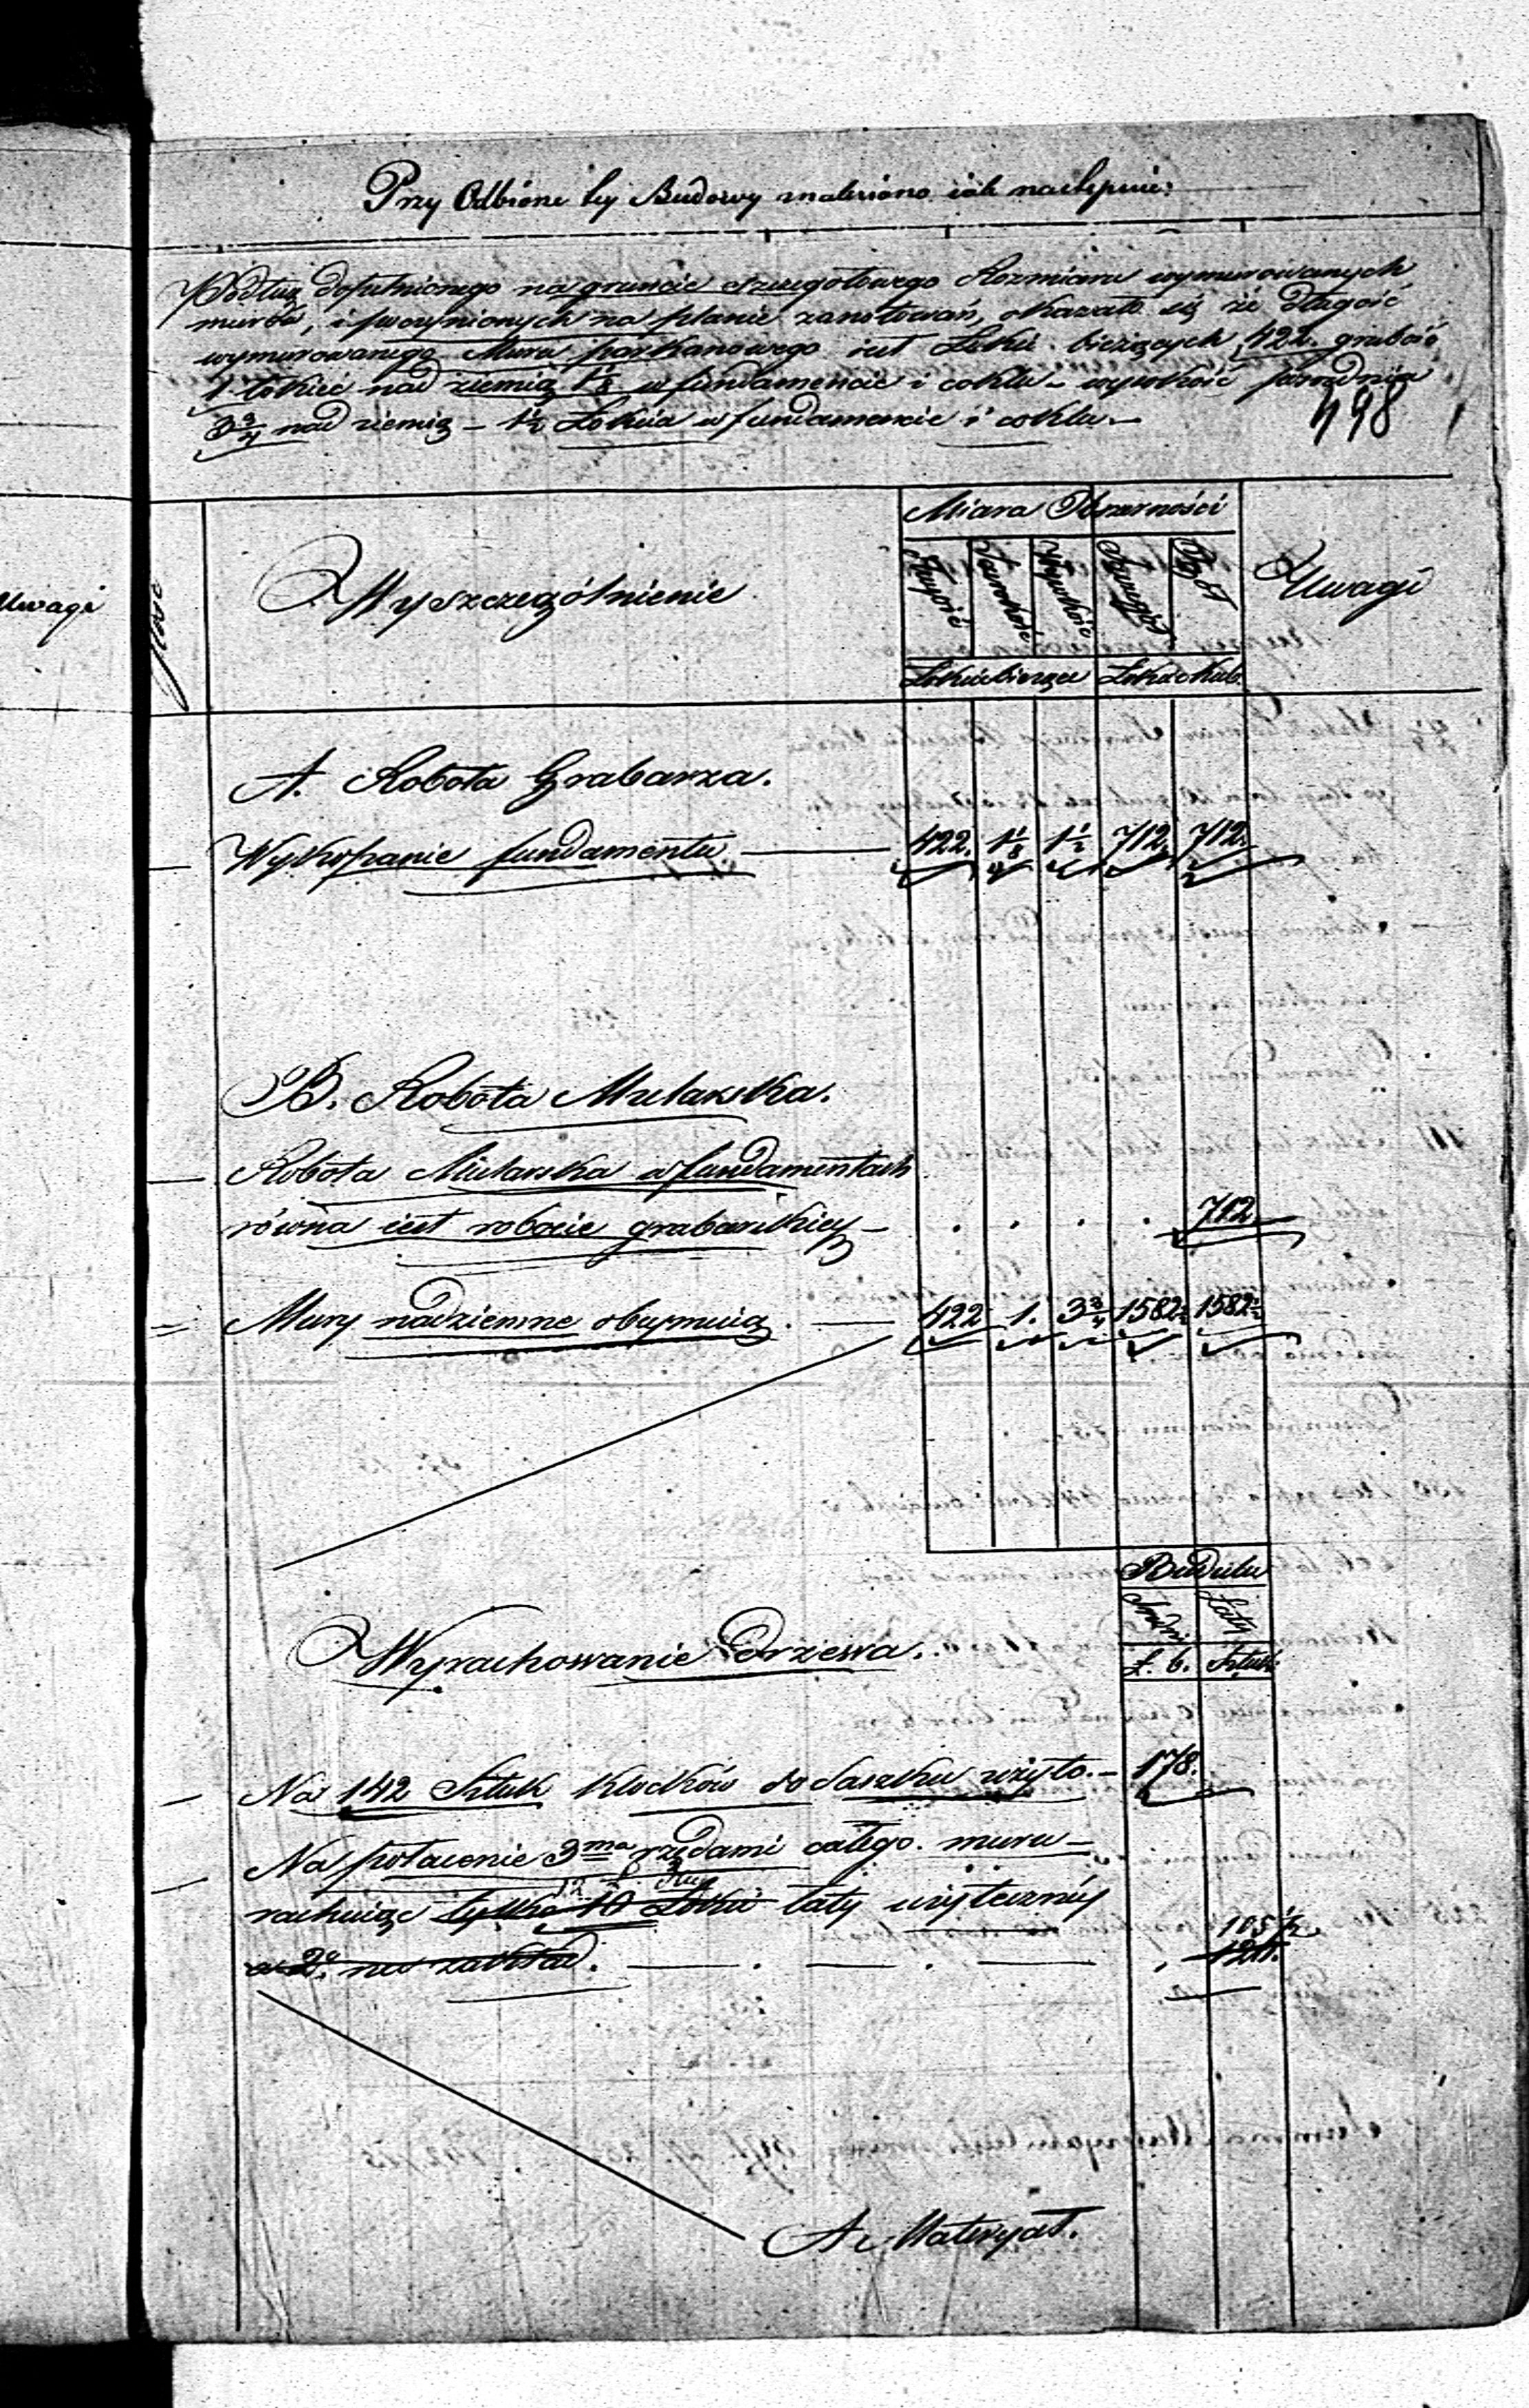 Przy Odbiorze tey Budowy znaleziono iak następuie:
Podług dopełnionego na gruncie szczegółowego Rozmiaru wymurowanych
murów, i poczynionych na planie zanotowań, okazało się że długość
wymurowanego Muru parkanowego iest Łokci bieżących 422. grubość
1 łokieć nad ziemią 1⅛ w fundamencie i coklu – wysokość
3¾ nad ziemią – 1½ Łokcia w fundamencie i coklu –
498
Uwagi
Ilość
Wyszczególnienie
Miara Obszerności
Długość
Szerokość
Wysokość
Szczegół
Ogół
Uwagi
Łokcie bieżące
Łokcie Kub.
A. Robota Grabarza.
– Wykopanie fundamentu. – 422. 1⅛ 1½ 712. 712.
B. Robota Mularska.
– Robota Mularska w fundamentach
równa iest robocie grabarskiey – . . . . 712
= Mury nadziemne obeymuią. – 422 1. 3¾ 1582½ 1582½
Budulcu
Średni
Łaty
Wyrachowanie Drzewa.
Ł. b.
Sztuk
– Na 142 Sztuk Klocków do daszku użyto. – 178.
– Na połacenie 3ma rzędami całego muru –
rachuiąc tylko 10 Łokci łaty użyteczney
105½
a 2. na zakład. – . – . – . 126.
A. Materyał.